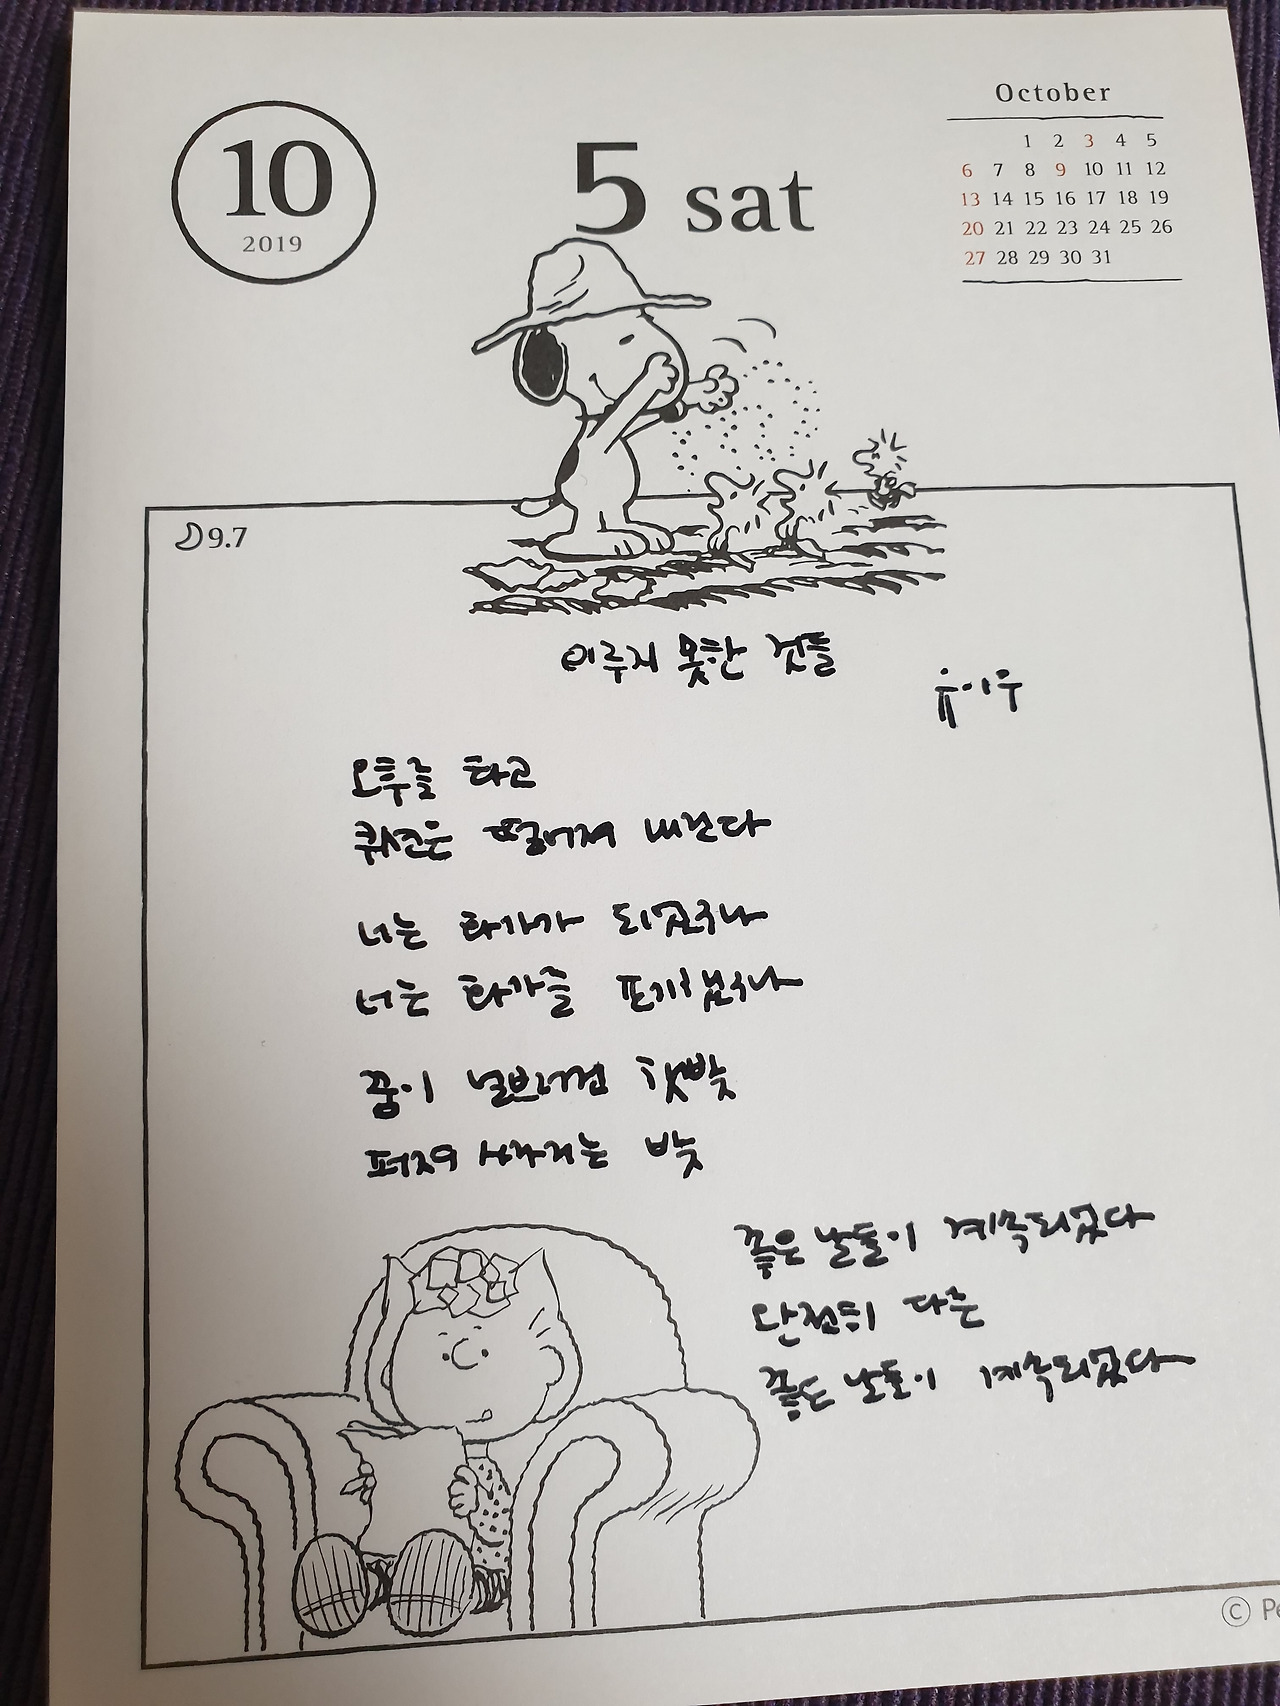 10
2019
5 sat
October
1 2 3 4 5
6 7 8 9 10 11 12
13 14 15 16 17 18 19
20 21 22 23 24 25 26
27 28 29 30 31
9.7
이루지 못한 것들
유이우
오후를 타고
떨어져 내린다
너는 화가가 되었구나
너는 화가를 포기했구나
꿈이 햇빛
퍼져 사라지는 빛
좋은 날들이 계속되었다
완전히 다른
좋은 날들이 계속되었다
©